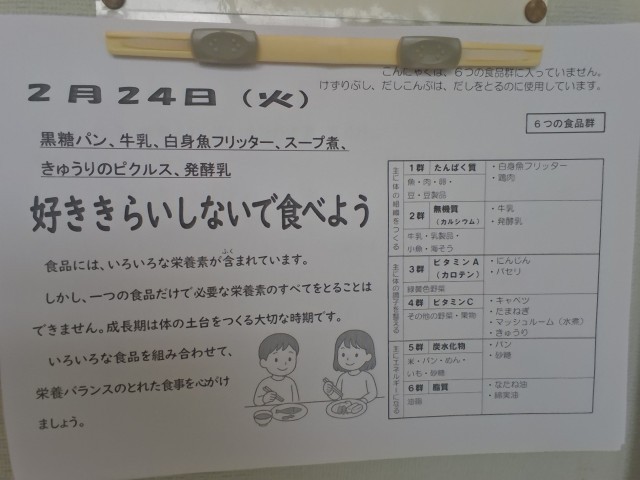 こんにゃくは、６つの食品群に入っていません。
けずりぶし、だしこんぶは、だしをとるのに使用しています。
２月２４日（火）
６つの食品群
黒糖パン、牛乳、白身魚フリッター、スープ煮、
きゅうりのピクルス、発酵乳
好ききらいしないで食べよう
食品には、いろいろな栄養素が含まれています。
ふく
しかし、一つの食品だけで必要な栄養素のすべてをとることは
できません。成長期は体の土台をつくる大切な時期です。
いろいろな食品を組み合わせて、
栄養バランスのとれた食事を心がけ
ましょう。
主に体の組織をつくる
１群 たんぱく質
魚・肉・卵・
豆・豆製品
・白身魚フリッター
・鶏肉
２群 無機質
（カルシウム）
牛乳・乳製品・
小魚・海そう
・牛乳
・発酵乳
主に体の調子を整える
３群 ビタミンＡ
（カロテン）
緑黄色野菜
・にんじん
・パセリ
４群 ビタミンＣ
その他の野菜・果物
・キャベツ
・たまねぎ
・マッシュルーム（水煮）
・きゅうり
主にエネルギーになる
５群 炭水化物
米・パン・めん・
いも・砂糖
・パン
・砂糖
６群 脂質
油脂
・なたね油
・綿実油